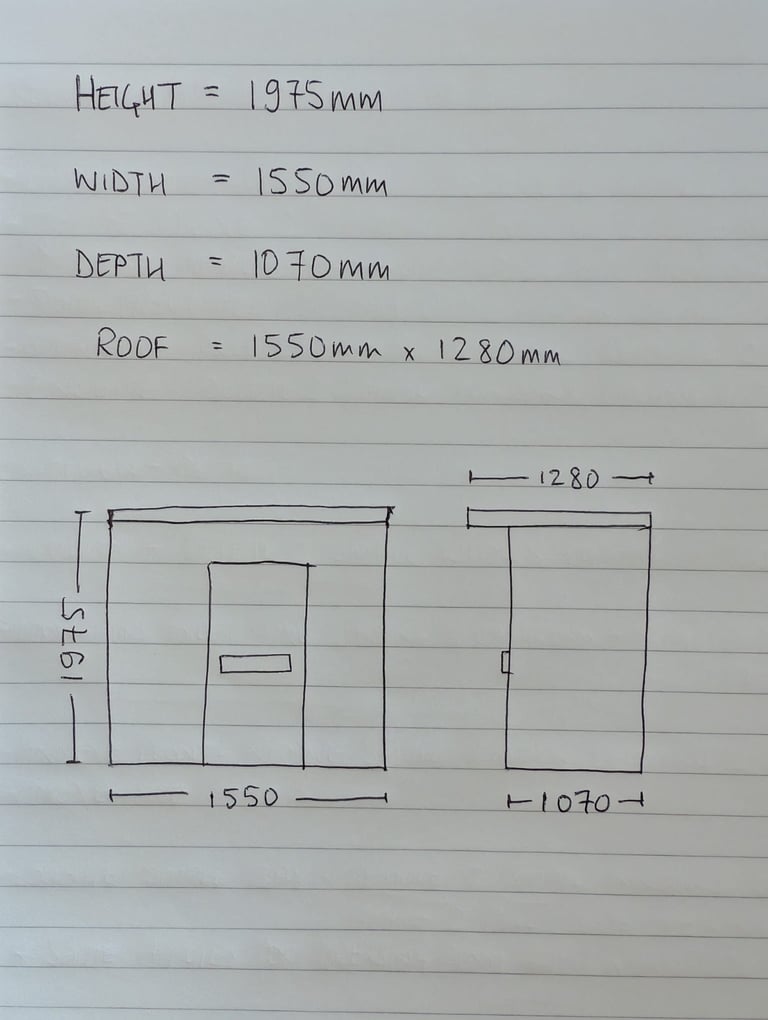 HEIGHT = 1975mm
WIDTH = 1550mm
DEPTH = 1070mm
ROOF = 1550mm x 1280mm
1280
1975
1550
1070